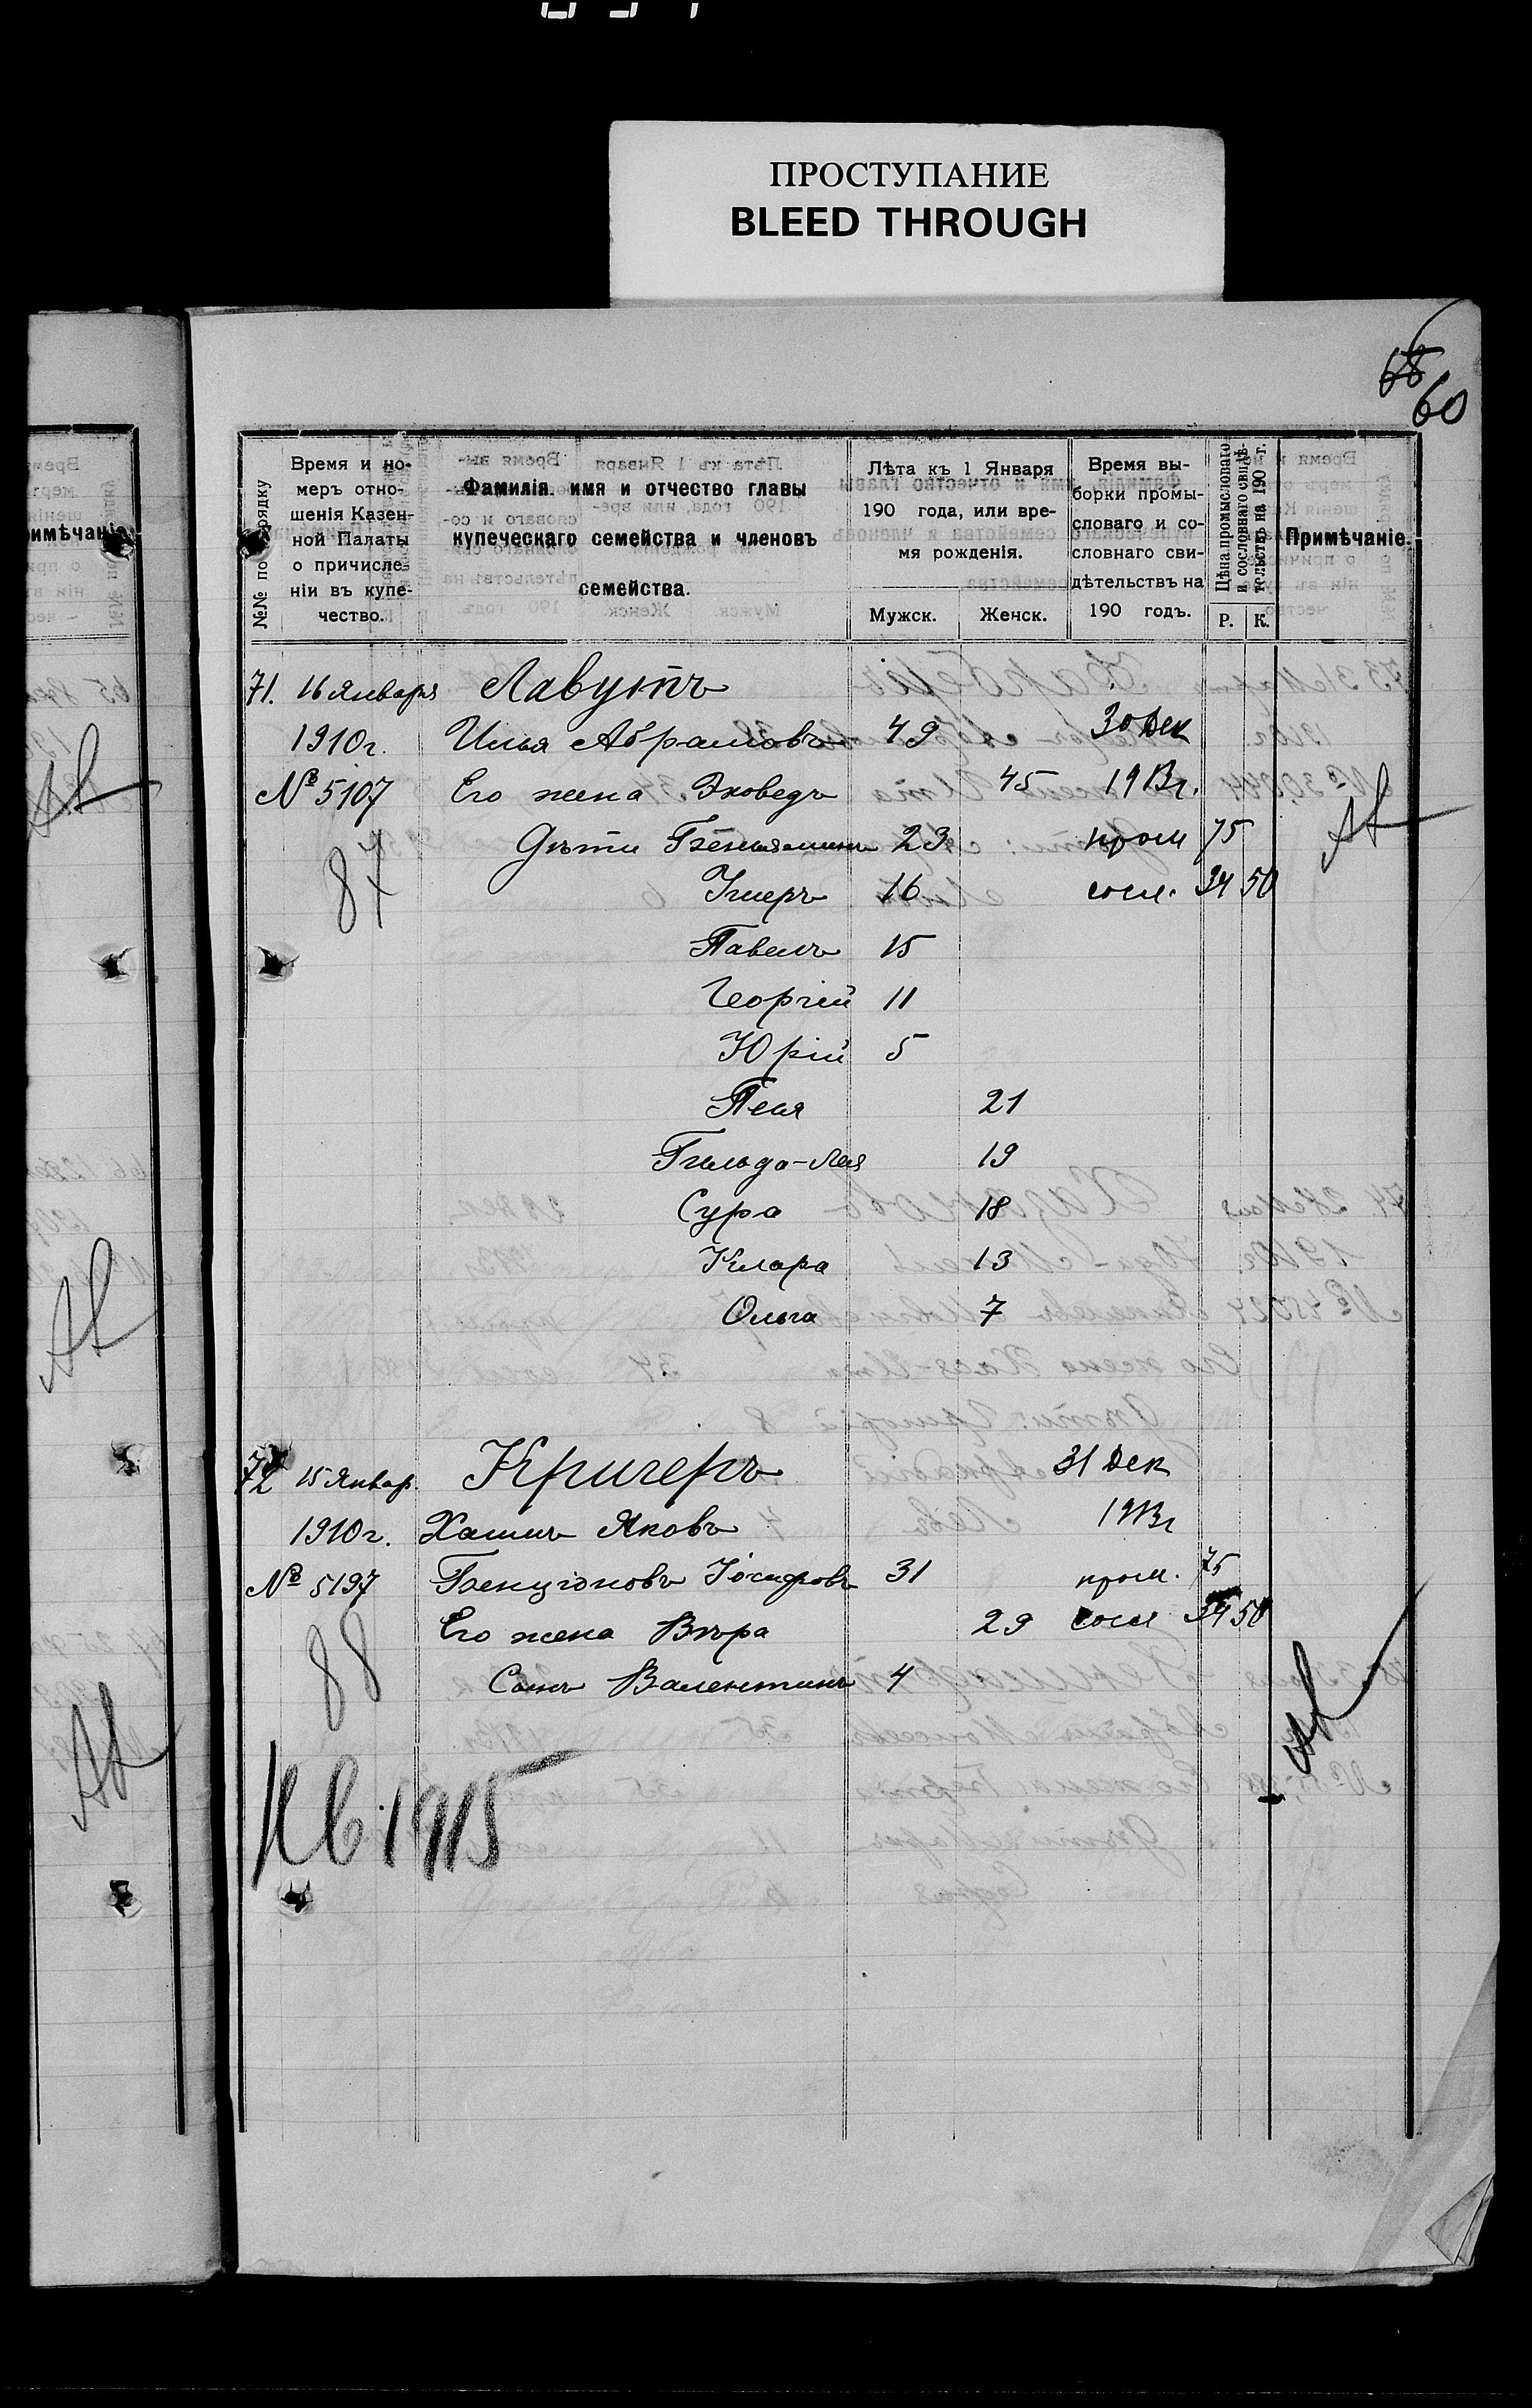 ПРОСТУПАНИЕ
BLEED THROUGH
68
60
имѣчаніе
№№ по порядку
Время и но-
меръ отно-
шенія Казен-
ной Палаты
о причисле-
ніи въ купе-
чество.
Фамилія. имя и отчество главы
купеческаго семейства и членовъ
семейства.
Лѣта къ 1 Января
190 года, или вре-
мя рожденія.
Мужск. Женск.
Время вы-
борки промы-
словаго и со-
словнаго сви-
дѣтельствъ на
190 годъ.
Цѣна промысловаго
и сословнаго свидѣ-
тельствъ на 190 г.
Р. К.
Примѣчаніе.
71. 16 Января Лавутъ
1910 г. Илья Абрамовъ 49 30 Дек
№ 5107 Его жена Эховедъ 45 1913 г.
87 Дѣти Беньяминъ 23 пром 75
16 сосл. 34 50
Павелъ 15
Георгій 11
Юрій 5
Песя 21
Гильда-Лея 19
Сура 18
Клара 13
Ольга 7
72 15 Январ. Кричеръ 31 Дек
1910 г. Хаимъ Яковъ 1913 г
№ 5197 Бенціоновъ Іосифовъ 31 пром. 75
88 Его жена Вѣра 29 сосл 34 50
Сынъ Валентинъ 4
1915